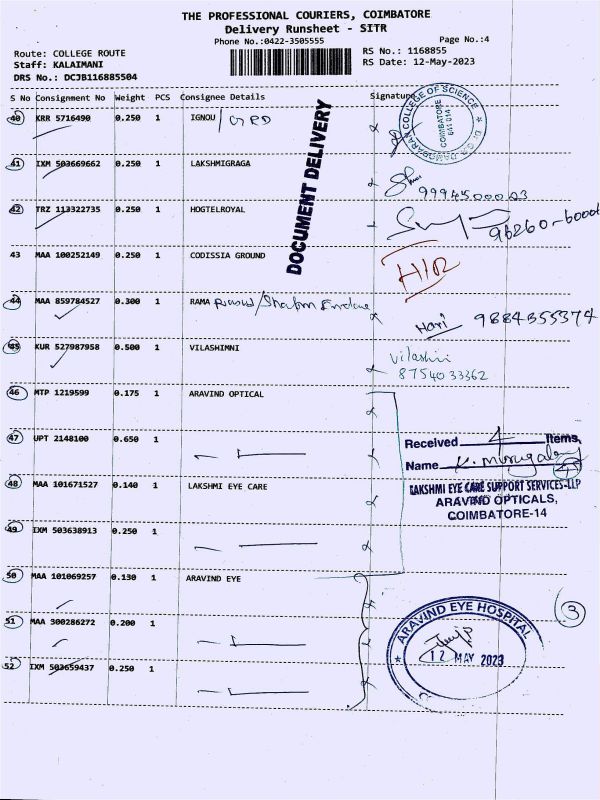 THE PROFESSIONAL COURIERS, COIMBATORE
Delivery Runsheet - SITR
Phone No.:0422-3505555
Page No.:4
Route: COLLEGE ROUTE
RS No.: 1168855
Staff: KALAIMANI
RS Date: 12-May-2023
DRS No.: DCJB116885504
S No Consignment No Weight PCS Consignee Details Signature
40 KRR 5716490 0.250 1 IGNOU / GRD
COLLEGE OF SCIENCE
COIMBATORE
641 014
DOCUMENT DELIVERY
41 IXM 503669662 0.250 1 LAKSHMIGRAGA
9994500003
42 TRZ 113322735 0.250 1 HOGTELROYAL
96260-60006
43 MAA 100252149 0.250 1 CODISSIA GROUND
H/R
44 MAA 859784527 0.300 1 RAMA
Hari 9884355374
45 KUR 527987958 0.500 1 VILASHIMNI
Vilashini
87540 33362
46 MTP 1219599 0.175 1 ARAVIND OPTICAL
47 UPT 2148100 0.650 1
Received 4 Items,
Name K. Murugal
4
48 MAA 101671527 0.140 1 LAKSHMI EYE CARE
LAKSHMI EYE CARE SUPPORT SERVICES-LLP
ARAVIND OPTICALS,
COIMBATORE-14
49 IXM 503638913 0.250 1
50 MAA 101069257 0.130 1 ARAVIND EYE
51 MAA 300286272 0.200 1
ARAVIND EYE HOSPITAL
12 MAY 2023
3
52 IXM 503659437 0.250 1